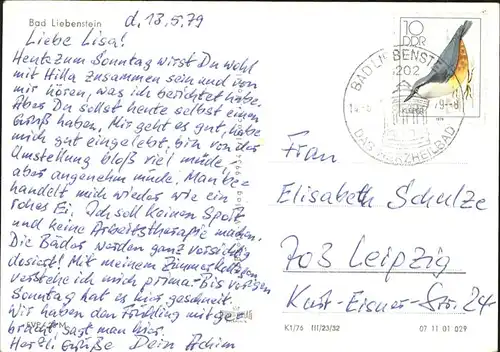 Bad Liebenstein
d. 13.5.79
Liebe Lisa!
Heute zum Sonntag wirst Du wohl
mit Hilla zusammen sein und von
mir hören, was ich berichtet habe.
Aber Du sollst heute selbst einen
Gruß haben. Mir geht es gut, habe
mich gut eingelebt, bin von der
Umstellung bloß viel müde,
aber angenehm müde. Man be-
handelt mich wieder wie ein
rohes Ei. Ich soll keinen Sport
und keine Arbeitstherapie machen.
Die Bäder werden ganz vorsichtig
dosiert! Mit meinem Zimmerkollegen
verstehe ich mich prima. Bis vorigen
Sonntag hat es hier geschneit.
Wir haben den Frühling mitge-
bracht, sagt man hier.
Herzl. Grüße Dein Achim
10
DDR
BAD LIEBENST
202
DAS HERZHEILBAD
KLEIBER
1979
Frau
Elisabeth Schulze
703 Leipzig
Kurt-Eisner-Str. 24
K1/76 III/23/32
07 11 01 029